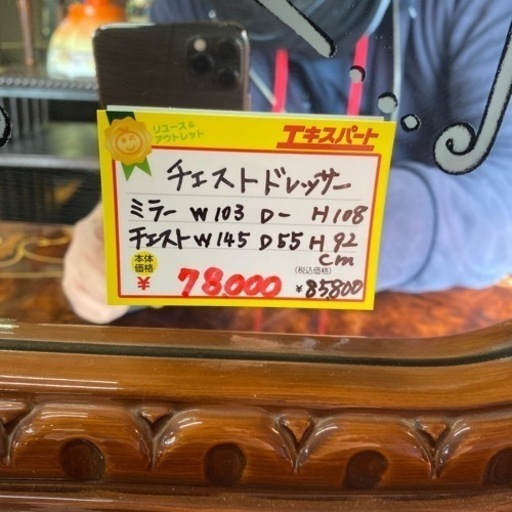 リユース&
アウトレット
エキスパート
チェストドレッサー
ミラー W103 D- H108
チェスト W145 D55 H92
cm
本体
価格
(税込価格)
¥ 78000 ¥85800